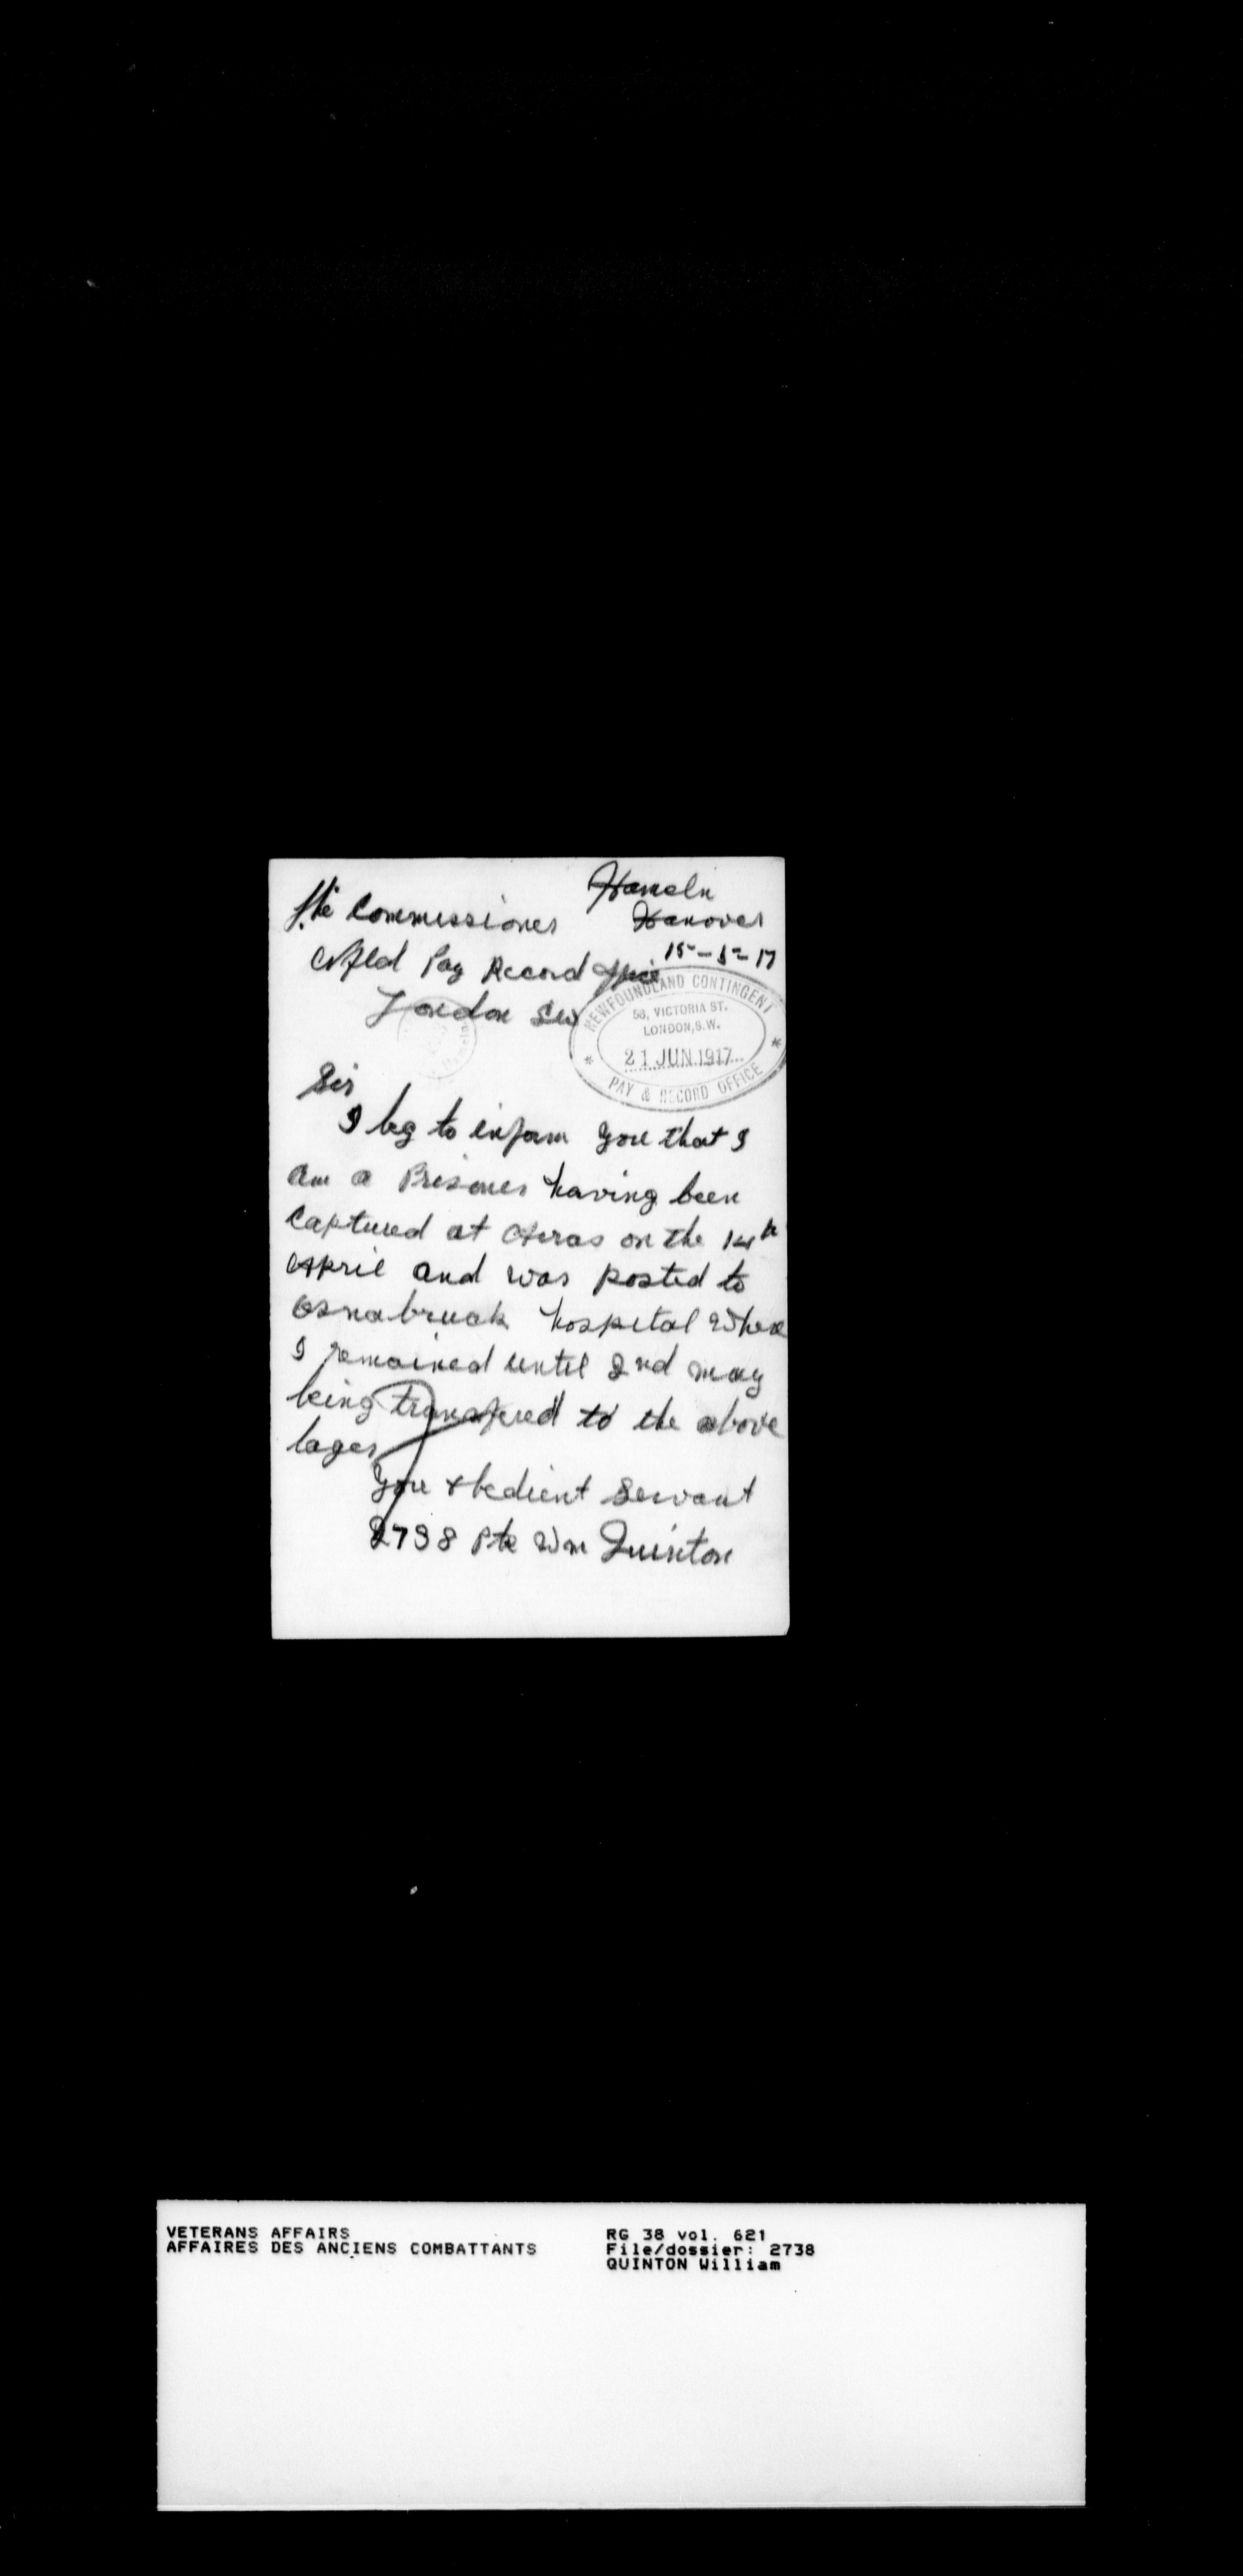 Hameln
The Commissioner
Hanover
15-5-17
Nfld Pay Record Office
London SW
NEWFOUNDLAND CONTINGENT
58, VICTORIA ST.
LONDON, S.W.
21 JUN 1917
PAY & RECORD OFFICE
Sir
I beg to infom you that I
am a Prisoner having been
Captured at Arras on the 14th
April and was posted to
Osnabruck hospital Where
I remained until 2nd may
being transfered to the above
lager
You obedient Servant
2738 Pte Wm Quinton
VETERANS AFFAIRS
AFFAIRES DES ANCIENS COMBATTANTS
RG 38 vol. 621
File/dossier: 2738
QUINTON William